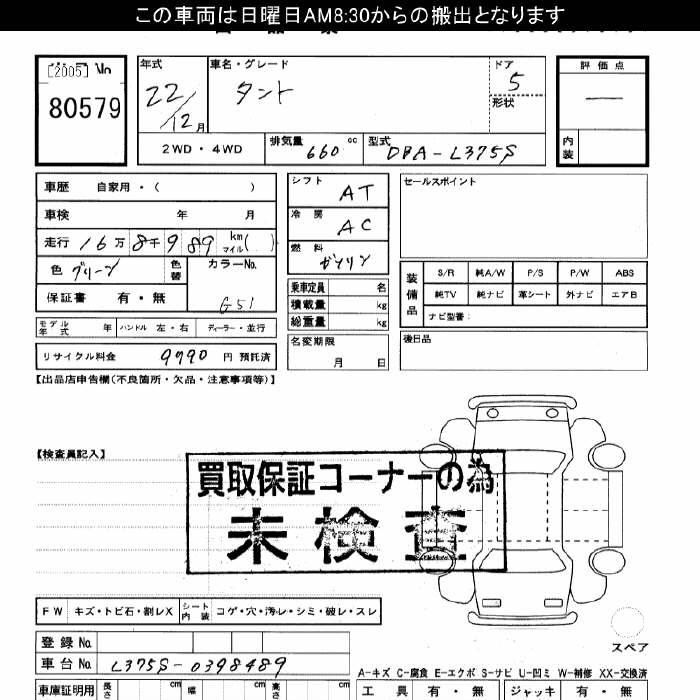 この車両は日曜日AM8:30からの搬出となります
[2005] No
80579
年式 22/12月
車名・グレード タント
ドア 5
形状
評価点 —
内装
2WD・4WD
排気量 660 cc
型式 DBA-L375S
車歴 自家用・( )
車検 年 月
走行 16万8千989 km マイル( )
色 グリーン 色替
カラーNo. G51
保証書 有・無
シフト AT
冷房 AC
燃料 ガソリン
乗車定員 名
積載量 kg
総重量 kg
セールスポイント
装備品
S/R 純A/W P/S P/W ABS
純TV 純ナビ 革シート 外ナビ エアB
ナビ型番:
モデル年式 年 ハンドル 左・右 ディーラー・並行
名変期限 月 日
後日品
リサイクル料金 9790 円 預託済
【出品店申告欄(不良箇所・欠品・注意事項等)】
【検査員記入】
買取保証コーナーの為
未検査
FW キズ・トビ石・割レX シート内装 コゲ・穴・汚レ・シミ・破レ・スレ
スペア
登録No.
車台No. L375S-0398489
A-キズ C-腐食 E-エクボ S-サビ U-凹ミ W-補修 XX-交換済
車庫証明用 長さ cm 幅 cm 高さ cm
工具 有・無 ジャッキ 有・無